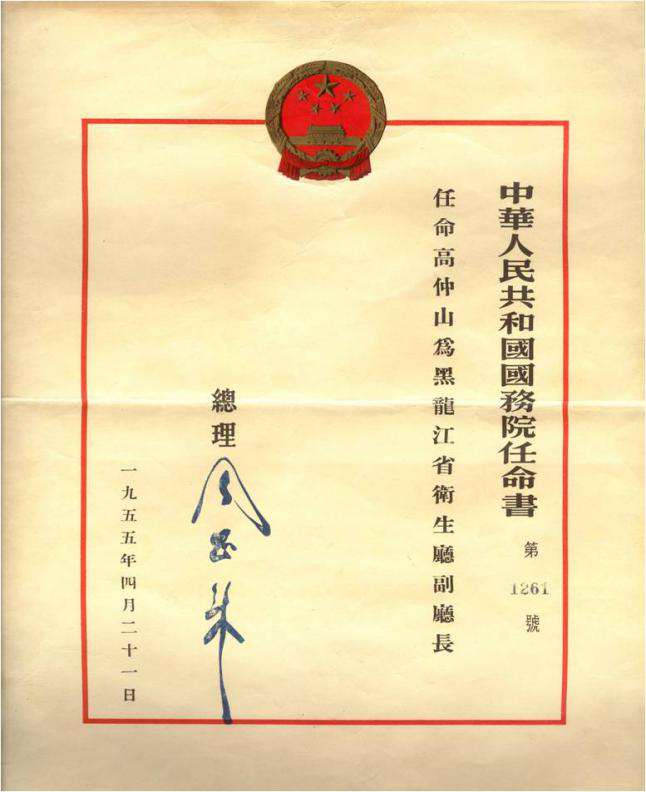 中華人民共和國國務院任命書
第
1261
號
任命高仲山爲黑龍江省衛生廳副廳長
總理
周恩來
一九五五年四月二十一日